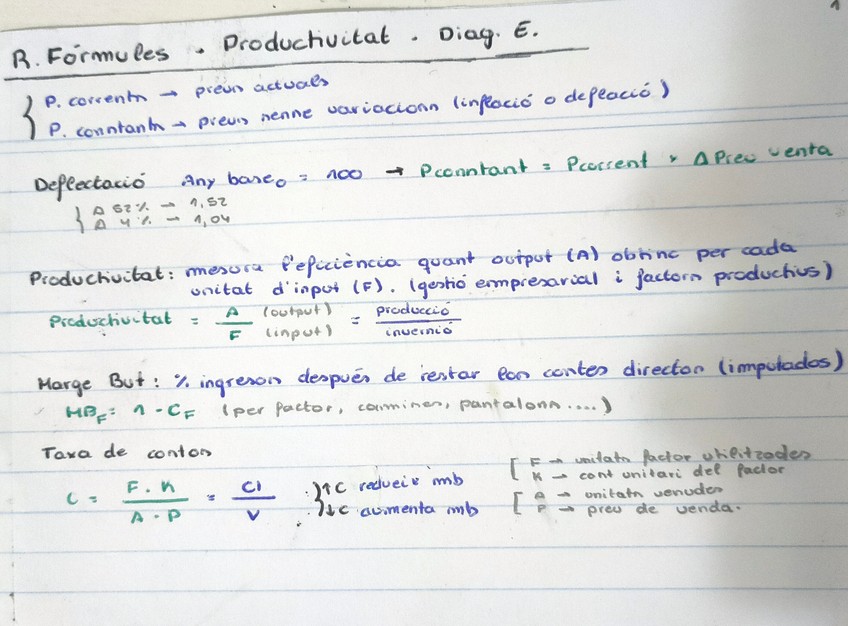 1
R. Fórmules. Productivitat. Diag. E.
{ P. corrents → preus actuals
P. constants → preus sense variacions (inflació o deflació)
Deflectació Any base₀ = 100 → Pconstant = Pcorrent × Δ Preu venta
{ Δ 52% → 1,52
Δ 4% → 1,04
Productivitat: mesura l'eficiència quant output (A) obtinc per cada
unitat d'input (F). (gestió empresarial i factors productius)
Productivitat = A (output) / F (input) = producció / inversió
Marge But: % ingresos después de restar los costes directos (imputados)
MB_F = 1 - C_F (per factor, camises, pantalons....)
Taxa de costos
C = F · K / A · P = CI / V } ↑C redueix mb
↓C augmenta mb
[ F → unitats factor utilitzades
K → cost unitari del factor
[ A → unitats venudes
P → preu de venda.